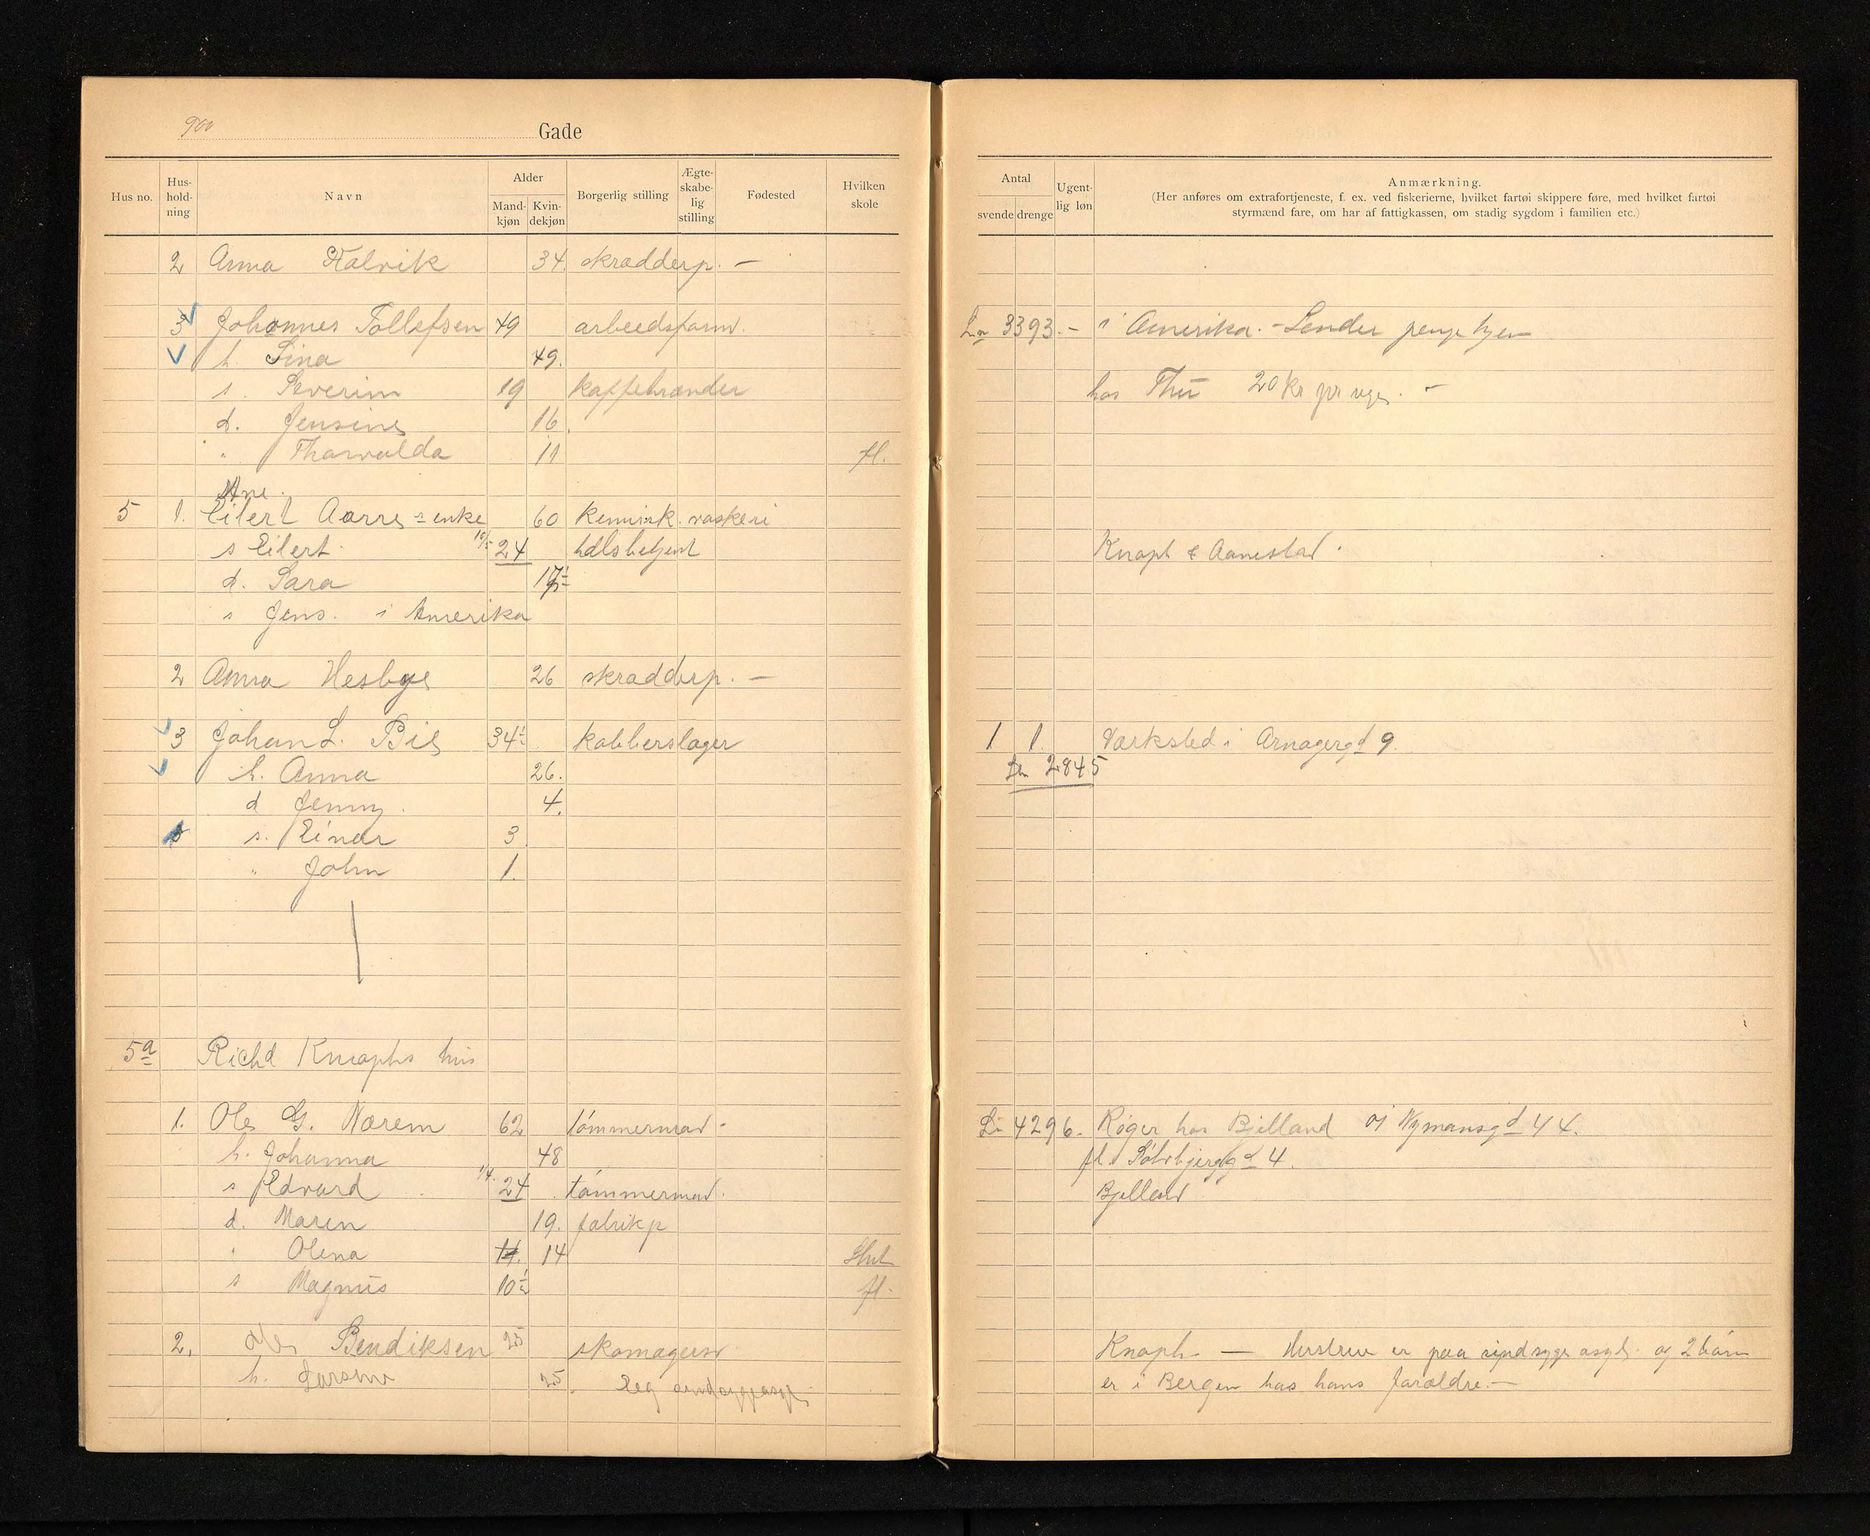 900 Gade
Hus no. Hus-hold-ning Navn Alder Mand-kjøn Kvin-dekjøn Borgerlig stilling Ægte-skabe-lig stilling Fødested Hvilken skole
2 Anna Kalvik 34. skrædderp. –
3 Johannes Tollefsen 49 arbeidsform.
h. Sina 49.
s. Severin 19 kaffebrænder
d. Jensine 16
" Thorvalda 11 fl.
Ane
5 1. Eilert Aarre's enke 60 kemisk vaskeri
s Eilert 24 hdlsbetjent
d. Sara
s Jens. i Amerika
2 Anna Hesbye 26 skrædderp. –
3 Johan L. Bie 34 kobberslager
h. Anna 26.
d Jenny. 4.
s. Einar 3
" John 1.
5a Richd Knaphs hus
1. Ole G. Norem 62 tømmermand
h. Johanna 48
s Edvard 1/4. 24 tømmermand.
d. Maren 19. fabrikp
" Olena 14. 14 Slut
s Magnus 10 fl.
2. Ole Bendiksen 25 skomagersv
h. 25
Antal svende drenge Ugent-lig løn Anmærkning.
(Her anføres om extrafortjeneste, f. ex. ved fiskerierne, hvilket fartøi skippere føre, med hvilket fartøi
styrmænd fare, om har af fattigkassen, om stadig sygdom i familien etc.)
Ln 3393. – i Amerika. – Sender penge hjem
hos Thu 20 kr pr uge. –
Knaph & Aanestad.
1 1. Værksted i Arnagergd 9.
Ln 2845
Ln 4296. Røger hos Bjelland Nymansgd 44.
fl. Sølvbjerggd 4.
Bjelland
Knaph – Hustru er paa sindsyge asyl. og 2 børn
er i Bergen hos hans forældre. –